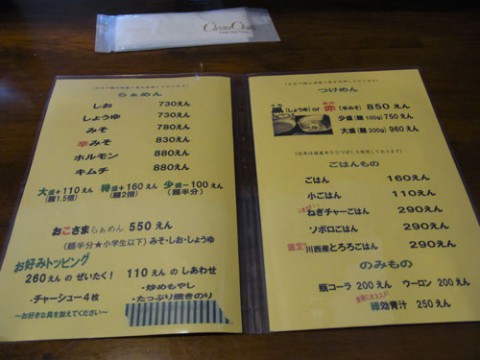 らぁめん
しお 730えん
しょうゆ 730えん
みそ 780えん
辛みそ 830えん
ホルモン 880えん
キムチ 880えん
大盛+110えん 特盛+160えん 少盛-100えん
(麺1.5倍) (麺2倍) (麺半分)
おこさまらぁめん 550えん
(麺半分★小学生以下)みそ・しお・しょうゆ
お好みトッピング
260えん の ぜいたく! 110えん の しあわせ
・チャーシュー4枚
・炒めもやし
・たっぷり焼きのり
～お好きな具を加えてください～
つけめん
黒(しょうゆ) or 赤(辛みそ) 850えん
少盛(麺100g) 750えん
大盛(麺300g) 960えん
ごはんもの
ごはん 160えん
小ごはん 110えん
ねぎチャーごはん 290えん
ソボロごはん 290えん
限定!川西産とろろごはん 290えん
のみもの
瓶コーラ 200えん ウーロン 200えん
緑効青汁 250えん